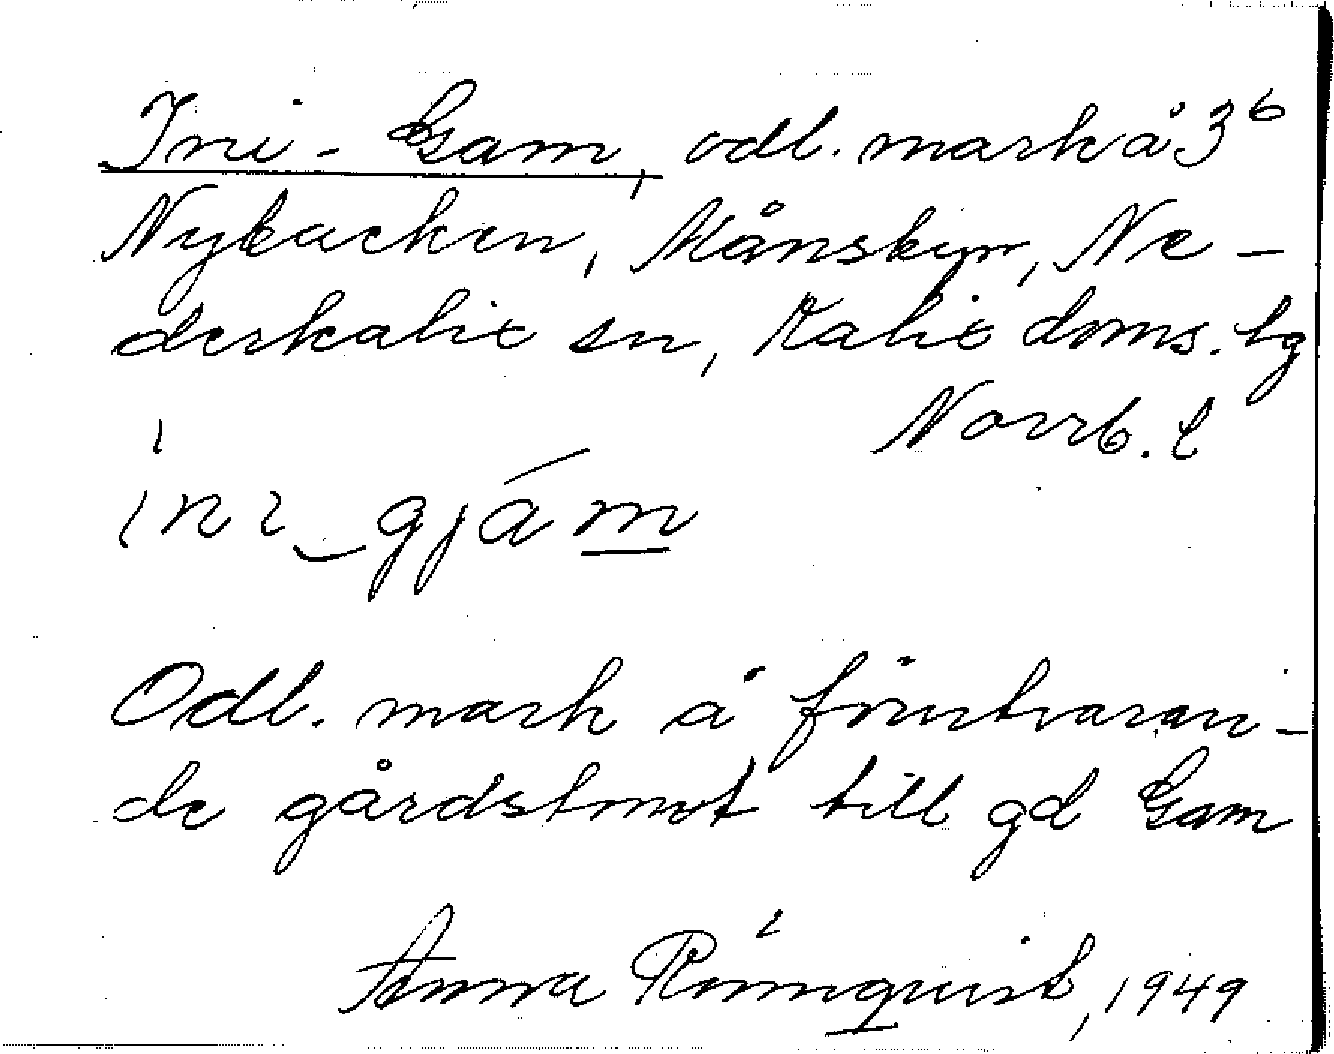 Ini - Gam, odl. mark å 3⁶
Nybacken, Månsbyn, Ne-
derkalix sn, Kalix doms. lg
Norrb. l
ini_gjám
Odl. mark å förutvaran-
de gårdstomt till gd Gam
Anna Rönnquist, 1949